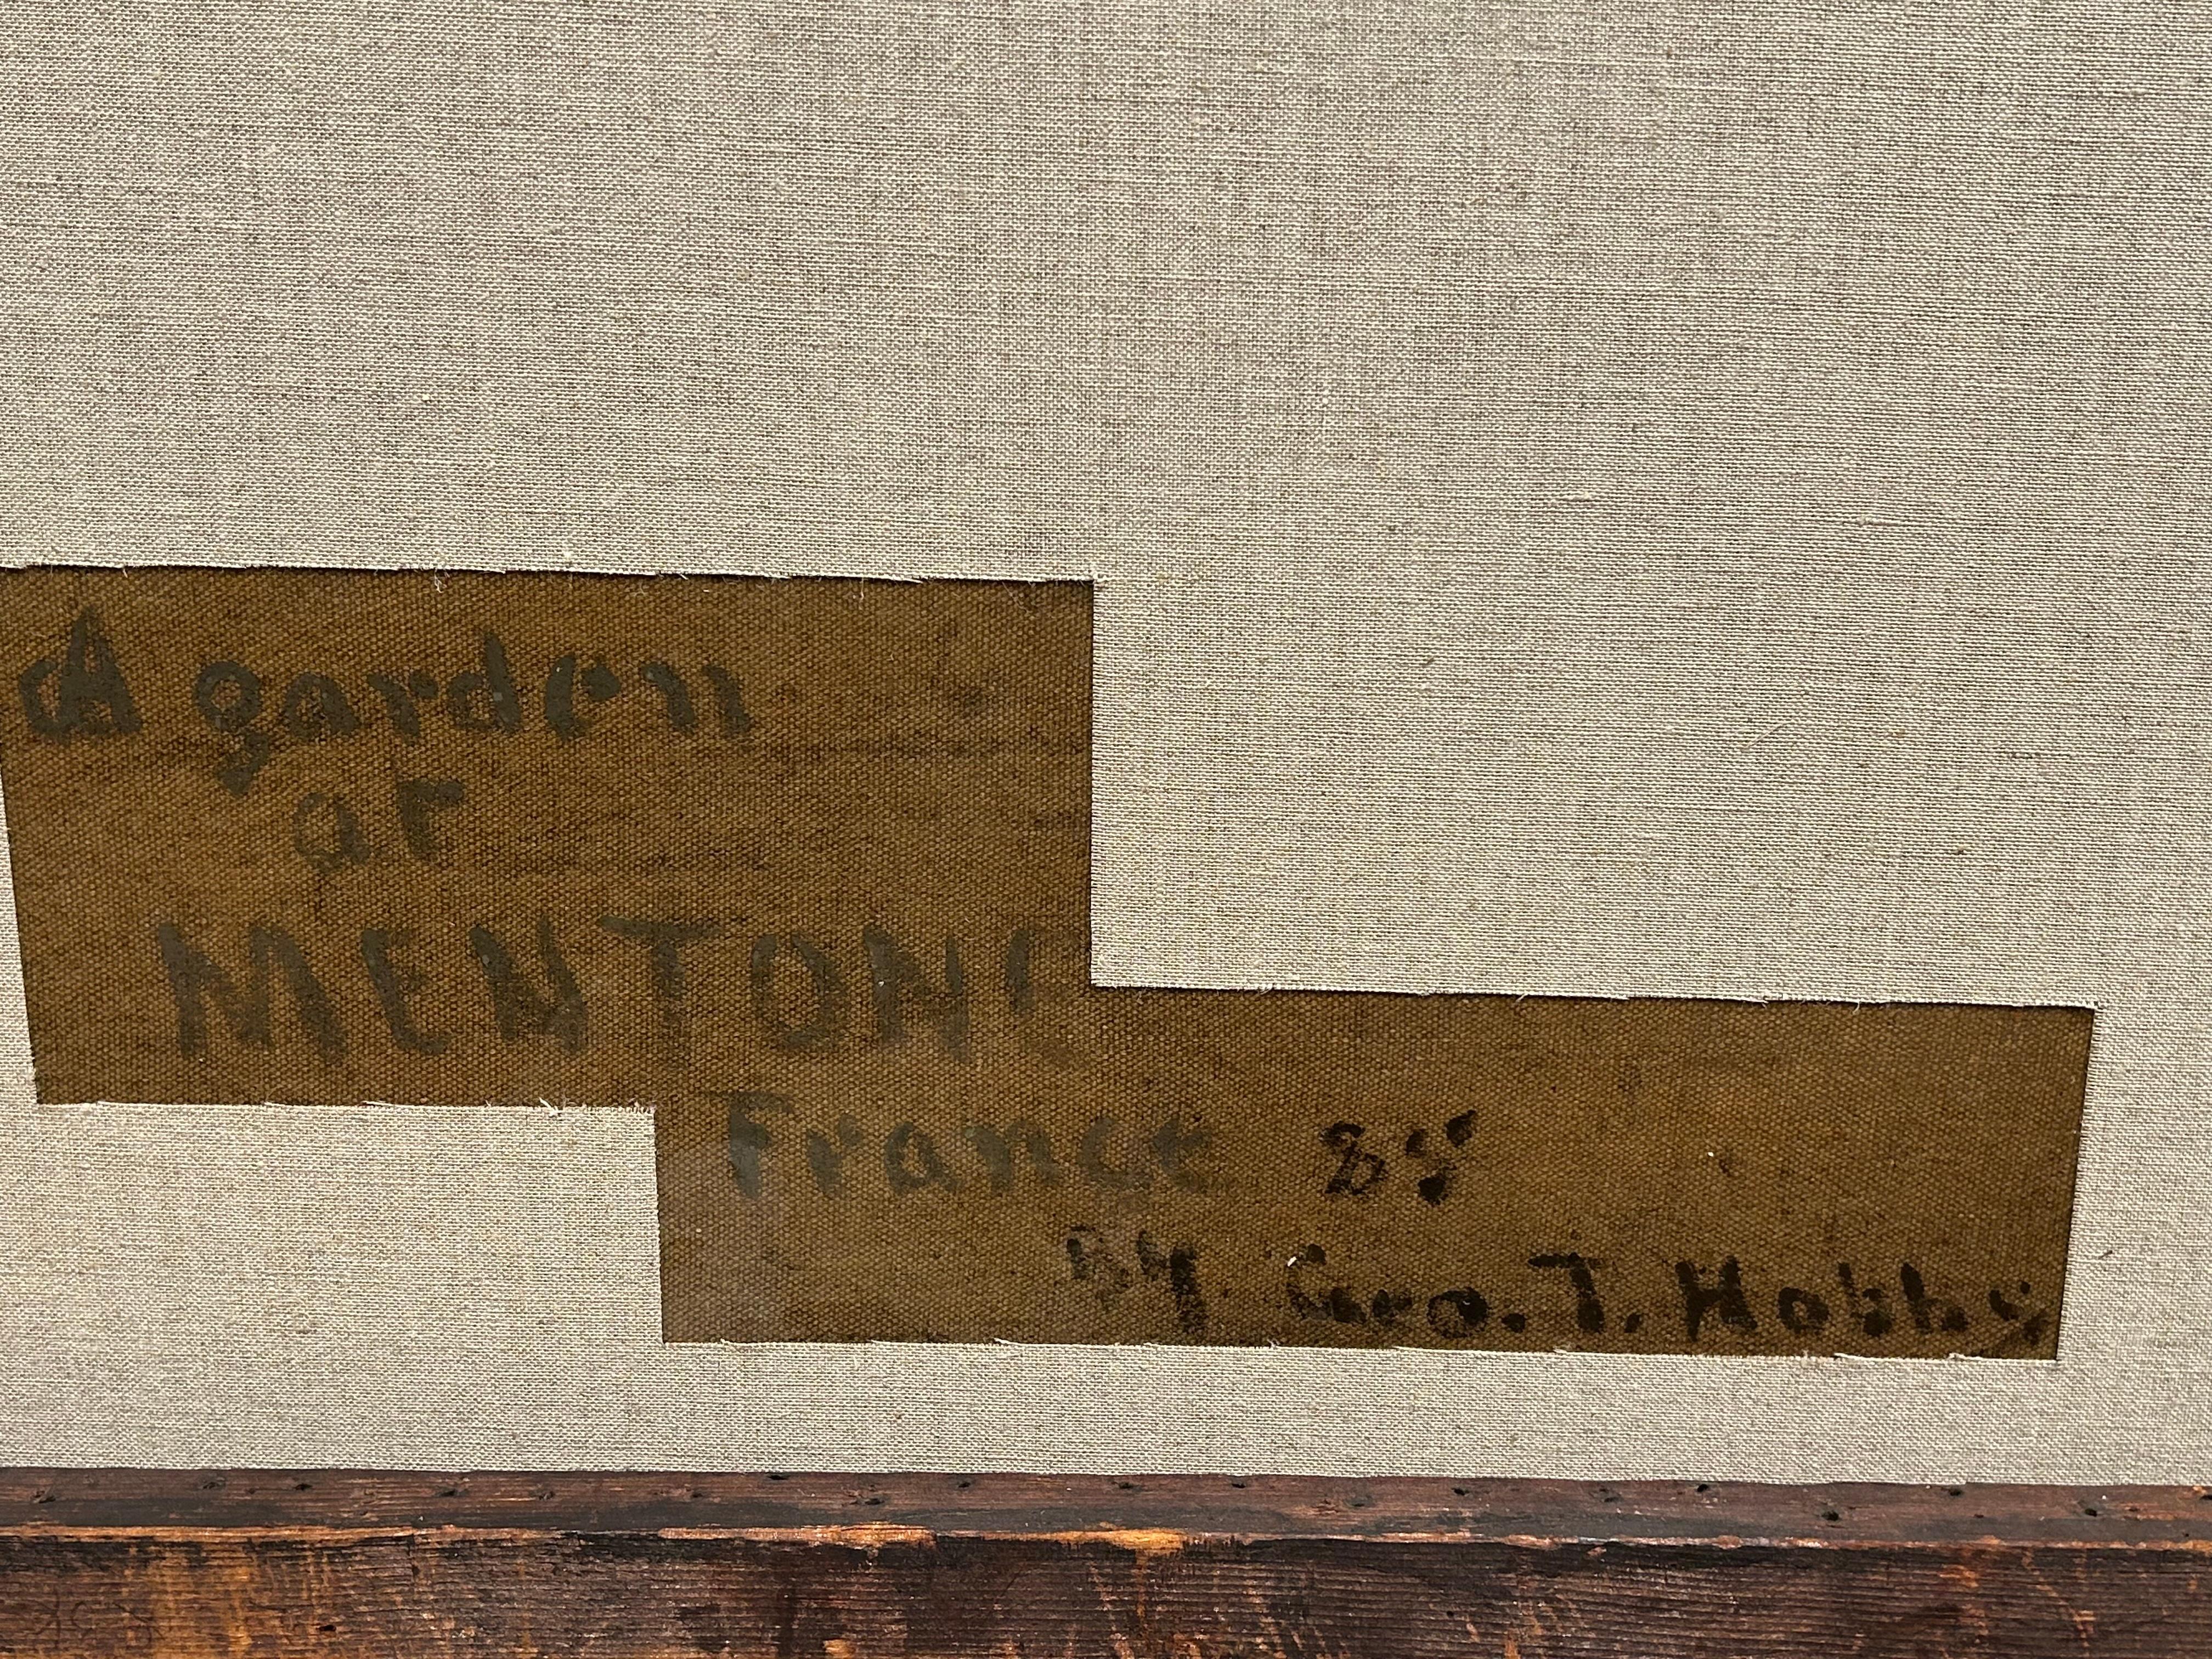 A garden
at
MENTONE
France 85
By Geo. T. Hobby